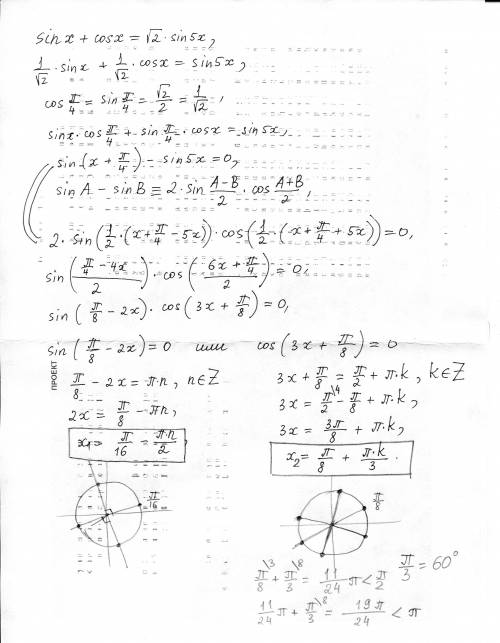 sin x + cos x = √2 · sin 5x,
1/√2 · sin x + 1/√2 · cos x = sin 5x,
cos π/4 = sin π/4 = √2/2 = 1/√2,
sin x · cos π/4 + sin π/4 · cos x = sin 5x,
sin (x + π/4) - sin 5x = 0,
sin A - sin B ≡ 2 · sin A-B/2 · cos A+B/2,
2 · sin(1/2 · (x + π/4 - 5x)) · cos(1/2 · (x + π/4 + 5x)) = 0,
sin(π/4 - 4x / 2) · cos(6x + π/4 / 2) = 0,
sin(π/8 - 2x) · cos(3x + π/8) = 0,
sin(π/8 - 2x) = 0 или cos(3x + π/8) = 0
ПРОЕКТ
π/8 - 2x = π·n, n∈Z
2x = π/8 - πn,
x₁ = π/16 = π·n/2,
π/16
3x + π/8 = π/2 + π·k, k∈Z
3x = π/2 \4 - π/8 + π·k,
3x = 3π/8 + π·k,
x₂ = π/8 + π·k/3.
π/8
π/8 \3 + π/3 \8 = 11/24 π < π/2
π/3 = 60°
11/24 π + π/3 \8 = 19π/24 < π